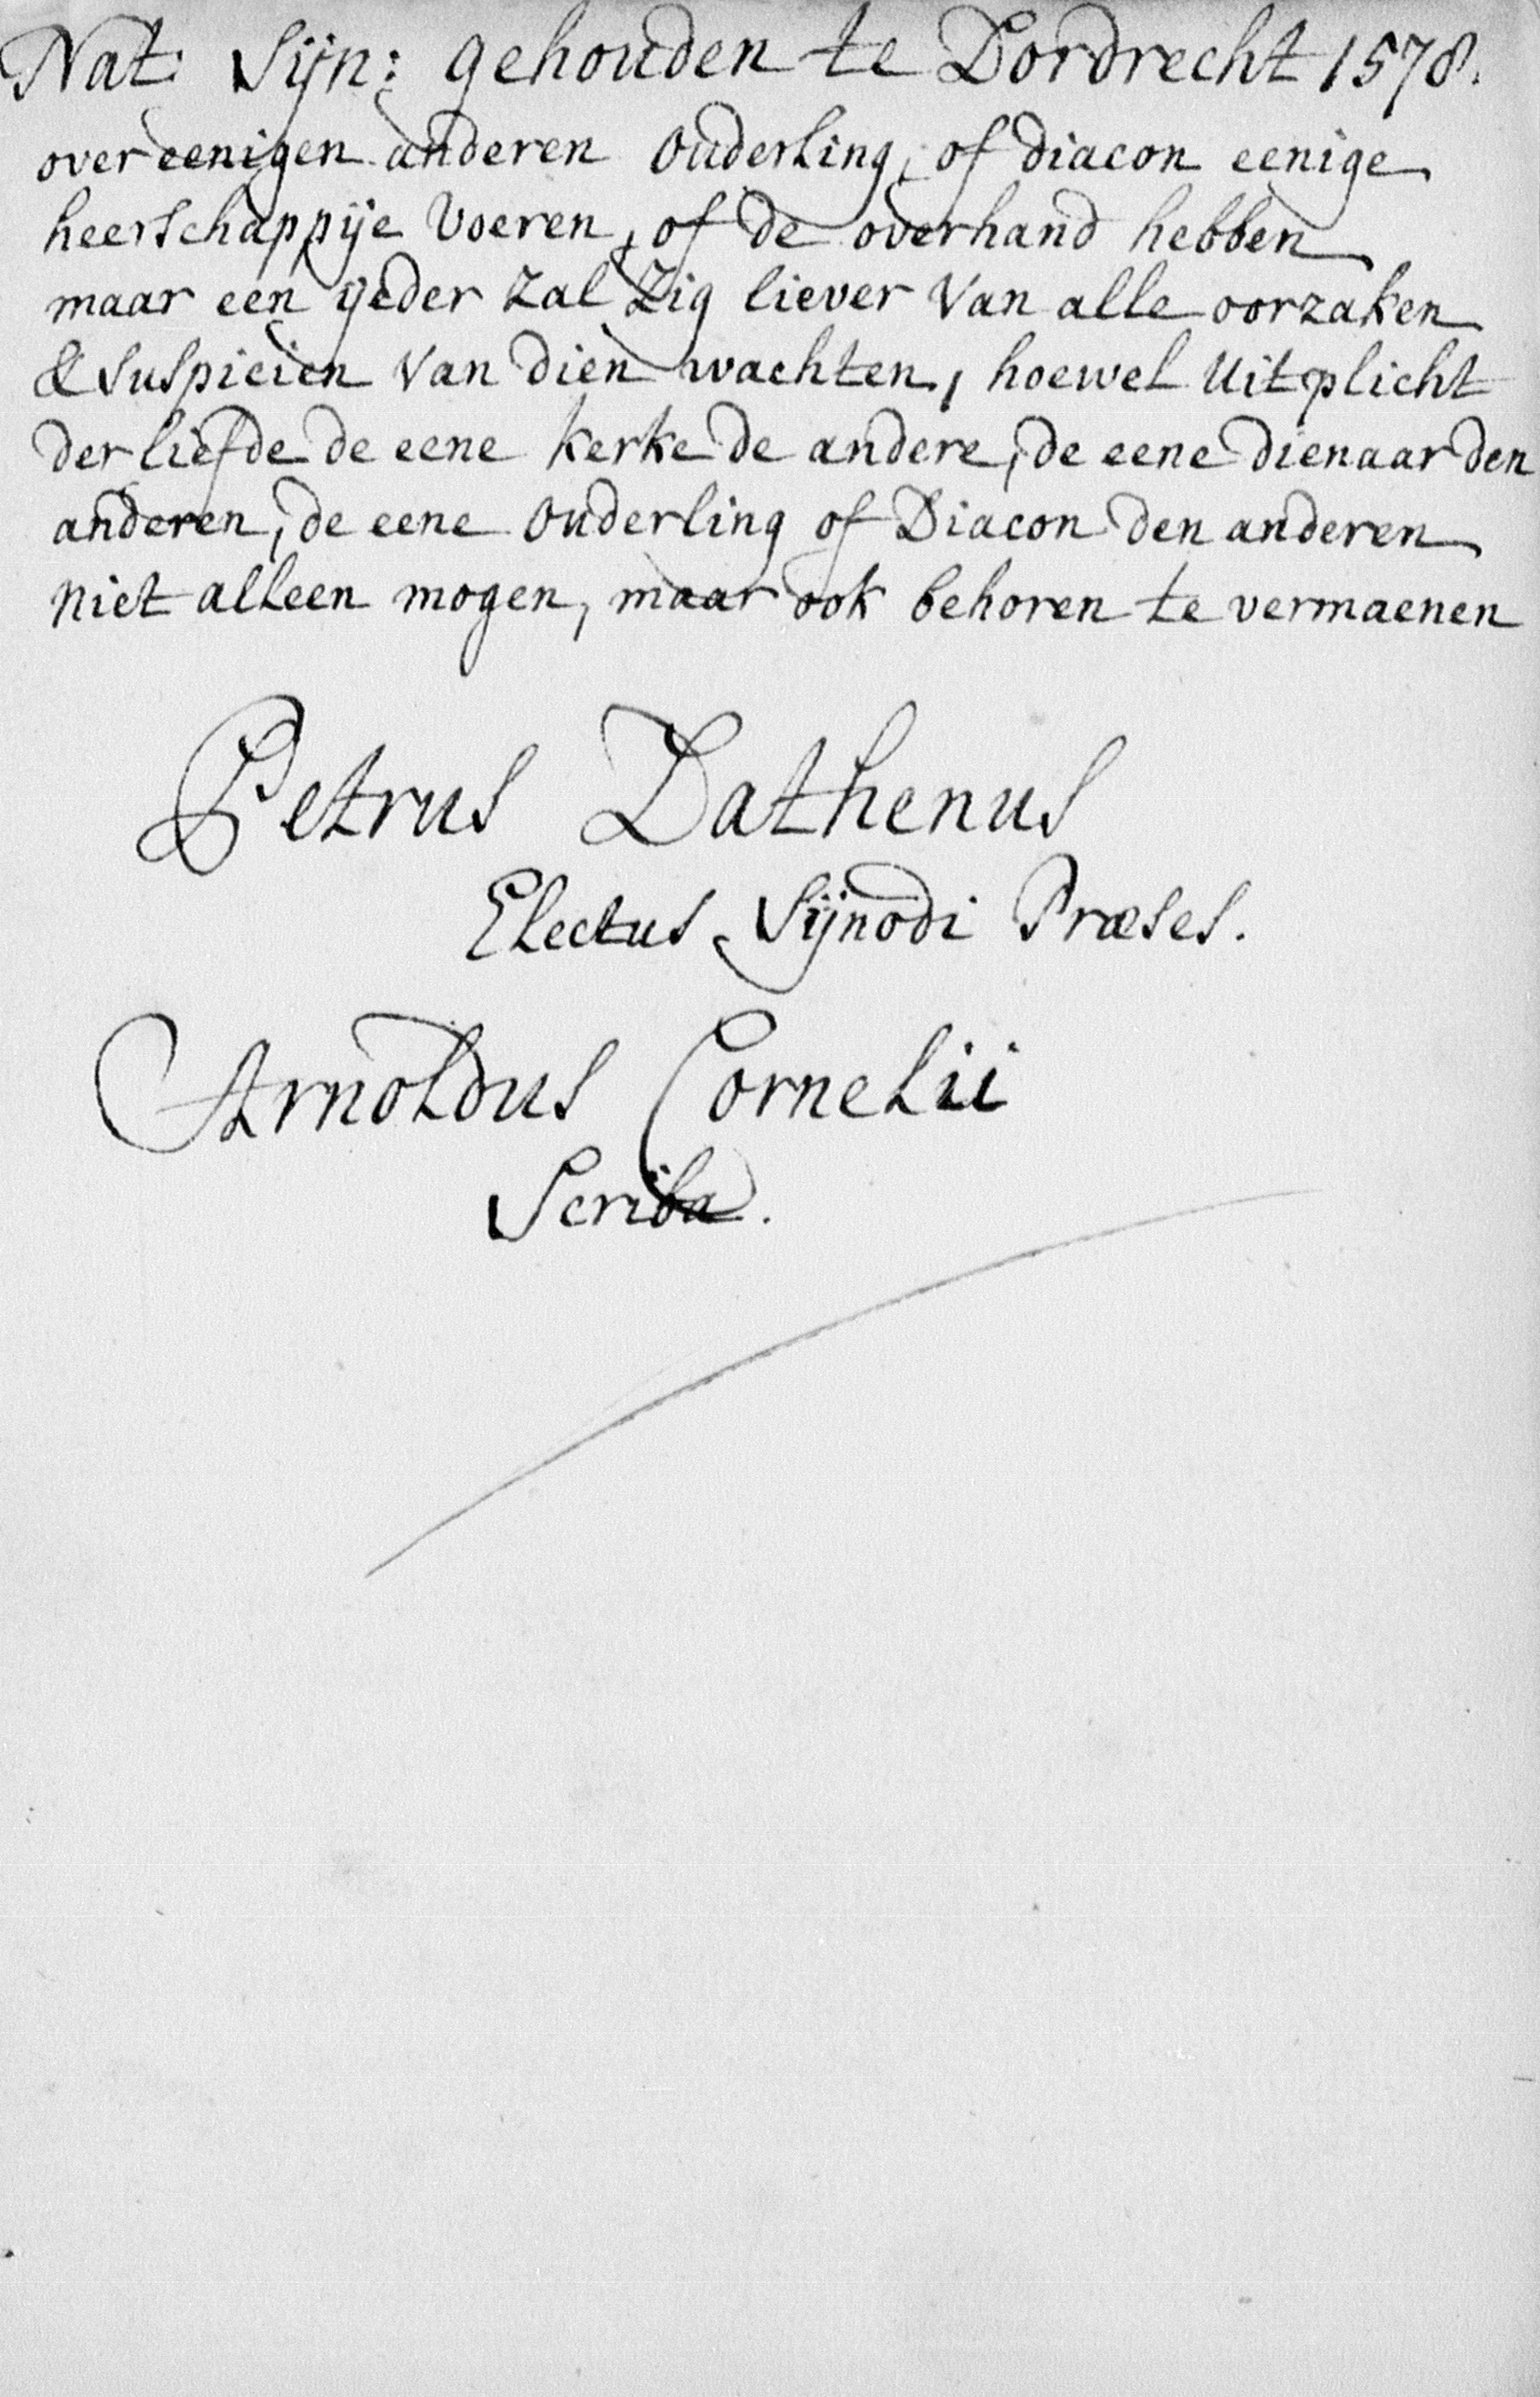 Nat: Sijn: gehouden te Dordrecht 1578.
over eenigen anderen Ouderling, of diacon eenige
heerschappije voeren, of de overhand hebben
maar een yeder zal Zig liever Van alle oorzaken
& suspicien Van dien wachten, hoewel Uit plicht
der liefde de eene kerke de andere, de eene dienaar den
anderen, de eene Ouderling of Diacon den anderen
niet alleen mogen, maar ook behoren te vermaenen
Petrus Dathenus
Electus Sijnodi Præses.
Arnoldus Cornelii
Scriba.